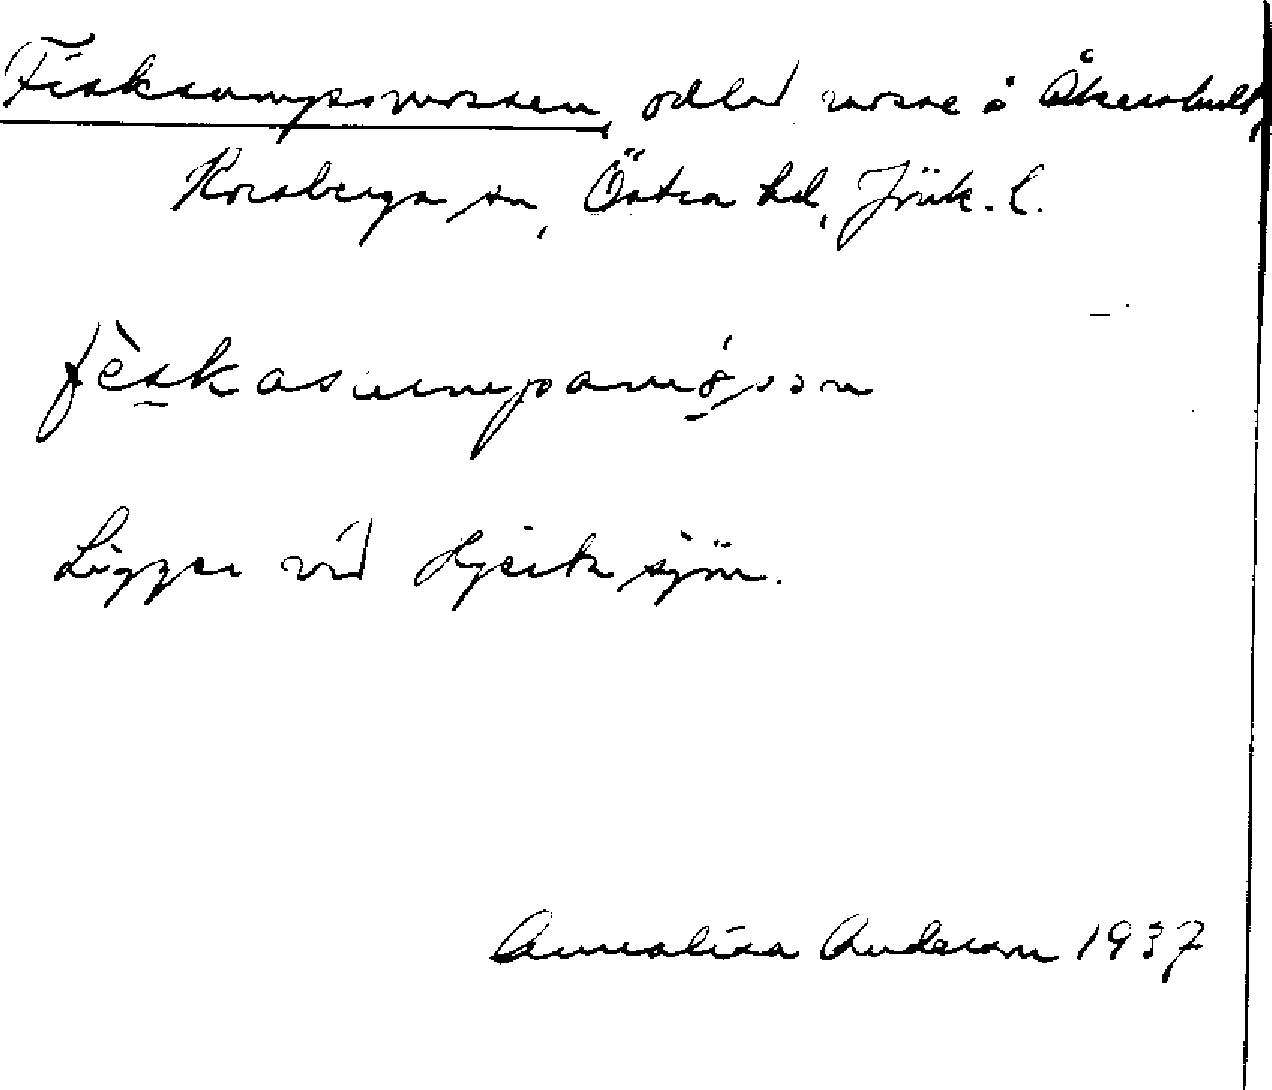 Fisksumpsmossen, odlad mosse å Åkershult,
Korsberga sn, Östra hd, Jönk. l.
fèskasumpamósson
Ligger vid Hjertesjön.
Annalisa Anderson 1937